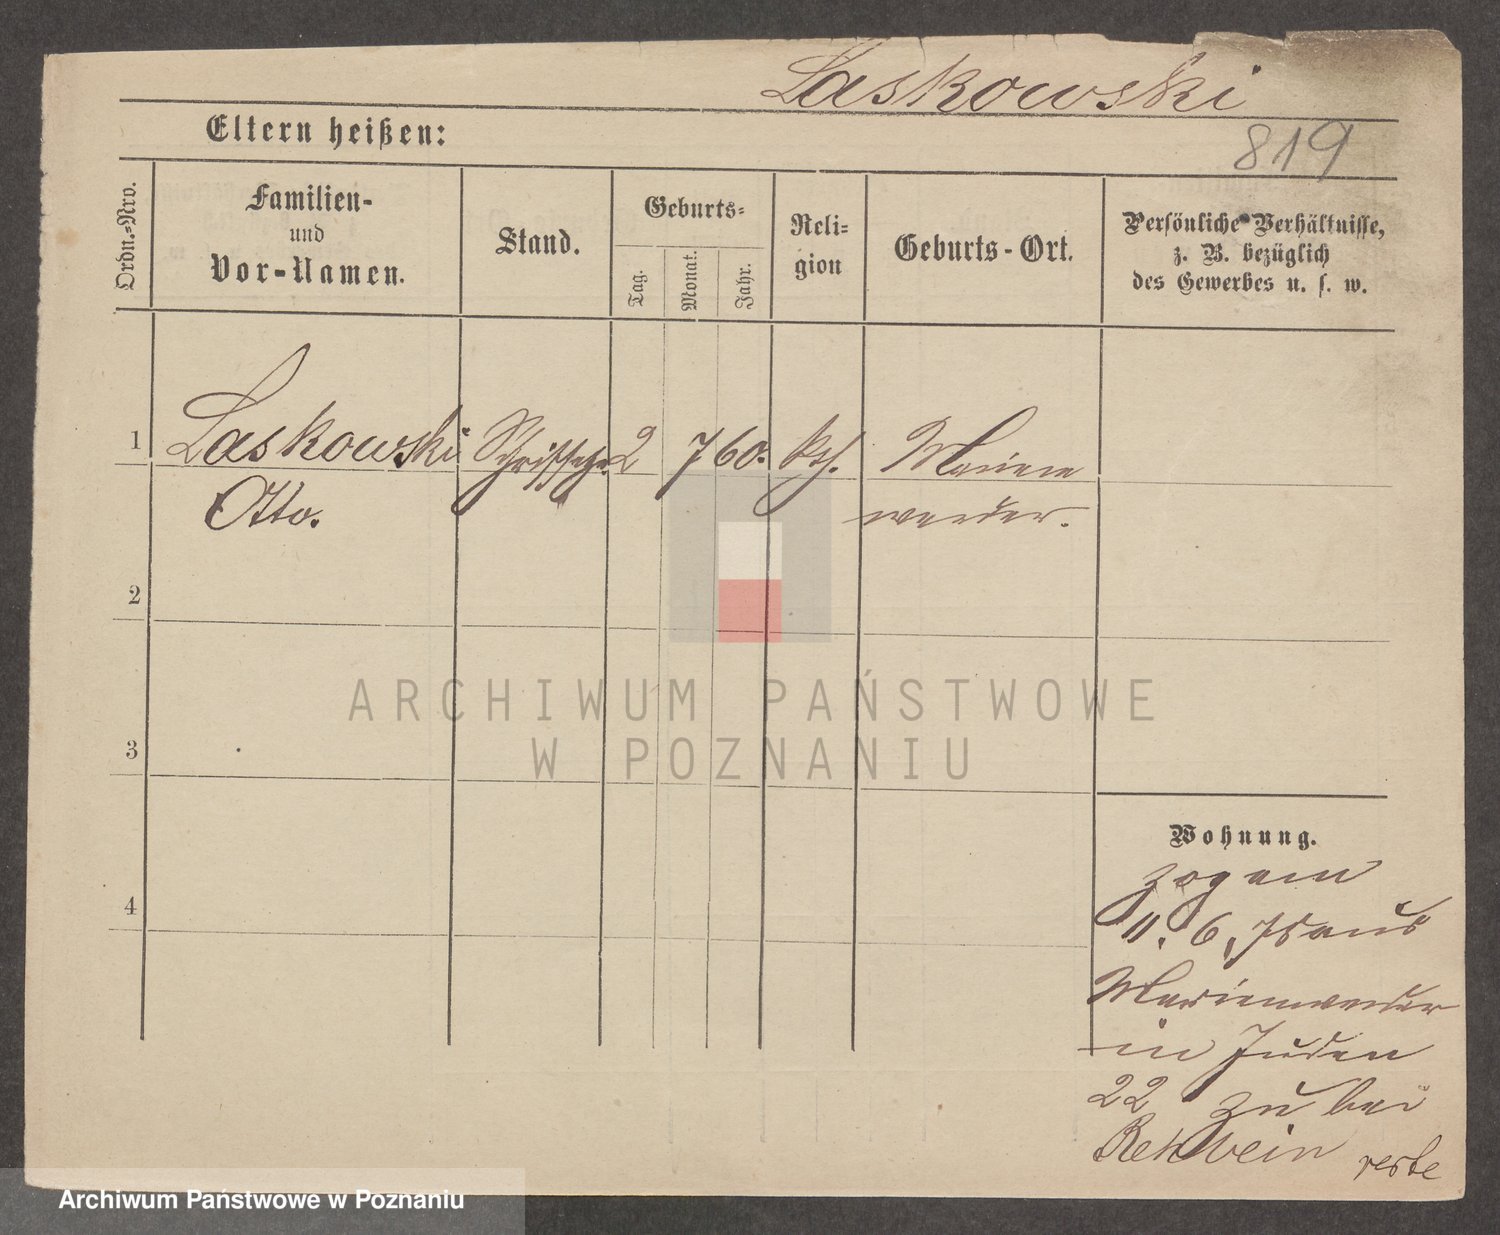 Laskowski
819
Eltern heißen:
Ordn.-Nro.
Familien-
und
Vor-Namen.
Stand.
Geburts-
Tag.
Monat.
Jahr.
Reli-
gion
Geburts-Ort.
Persönliche Verhältnisse,
z. B. bezüglich
des Gewerbes u. s. w.
1
Laskowski
Otto.
2 7 60.
kth.
Marien
werder.
2
3
4
ARCHIWUM PAŃSTWOWE
W POZNANIU
Wohnung.
zog am
11. 6. 78 aus
Marienwerder
in Juden
22 zu bei
Rehbein
Archiwum Państwowe w Poznaniu